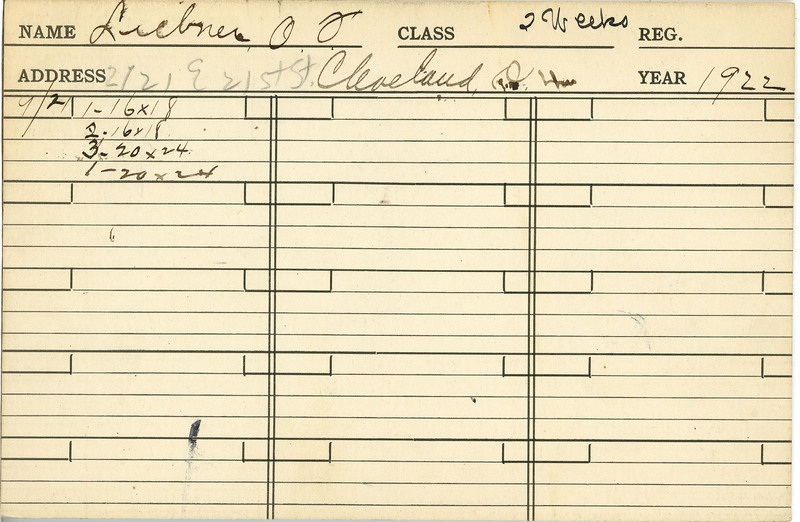 NAME Liebner, O F CLASS 2 Weeks REG.
ADDRESS 2121 E 21st St. Cleveland, YEAR 1922
9/21 1-16x18
2-16x18
3-20x24
1-20x24